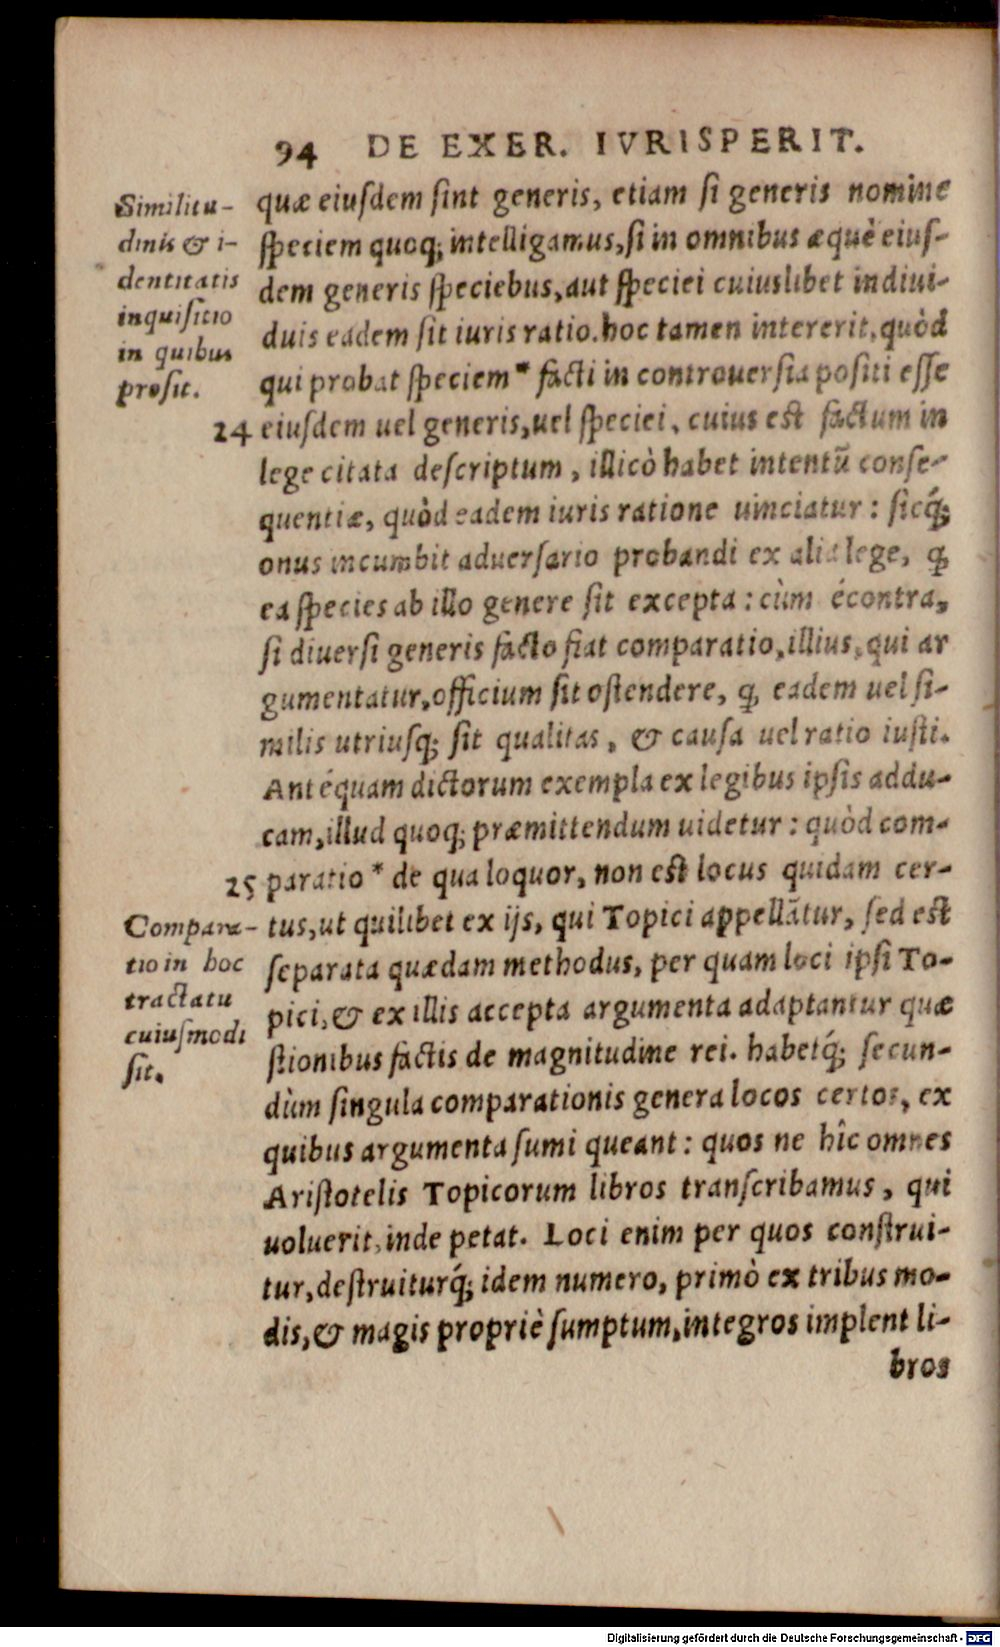 94 DE EXER. IVRISPERIT.
quæ eiuſdem ſint generis, etiam ſi generis nomine
ſpeciem quoq; intelligamus, ſi in omnibus æquè eiuſ-
dem generis ſpeciebus, aut ſpeciei cuiuslibet indiui-
duis eadem ſit iuris ratio. hoc tamen intererit, quòd
qui probat ſpeciem * facti in controuerſia poſiti eſſe
24 eiuſdem uel generis, uel ſpeciei, cuius est factum in
lege citata deſcriptum, illicò habet intentū conſe-
quentiæ, quòd eadem iuris ratione uinciatur: ſicq́;
onus incumbit aduerſario probandi ex alia lege, ꝙ
ea ſpecies ab illo genere ſit excepta: cùm écontra,
ſi diuerſi generis facto fiat comparatio, illius, qui ar
gumentatur, officium ſit oſtendere, ꝙ eadem uel ſi-
milis utriuſq; ſit qualitas, & cauſa uel ratio iuſti.
Antéquam dictorum exempla ex legibus ipſis addu-
cam, illud quoq; præmittendum uidetur: quòd com-
25 paratio * de qua loquor, non est locus quidam cer-
tus, ut quilibet ex ijs, qui Topici appellātur, ſed est
ſeparata quædam methodus, per quam loci ipſi To-
pici, & ex illis accepta argumenta adaptantur quæ
ſtionibus factis de magnitudine rei. habetq́; ſecun-
dùm ſingula comparationis genera locos certos, ex
quibus argumenta ſumi queant: quos ne hîc omnes
Ariſtotelis Topicorum libros tranſcribamus, qui
uoluerit, inde petat. Loci enim per quos conſtrui-
tur, deſtruiturq́; idem numero, primò ex tribus mo-
dis, & magis propriè ſumptum, integros implent li-
bros
Similitu-
dinis & i-
dentitatis
inquiſitio
in quibus
proſit.
Compara-
tio in hoc
tractatu
cuiuſmodi
ſit.
Digitalisierung gefördert durch die Deutsche Forschungsgemeinschaft - DFG